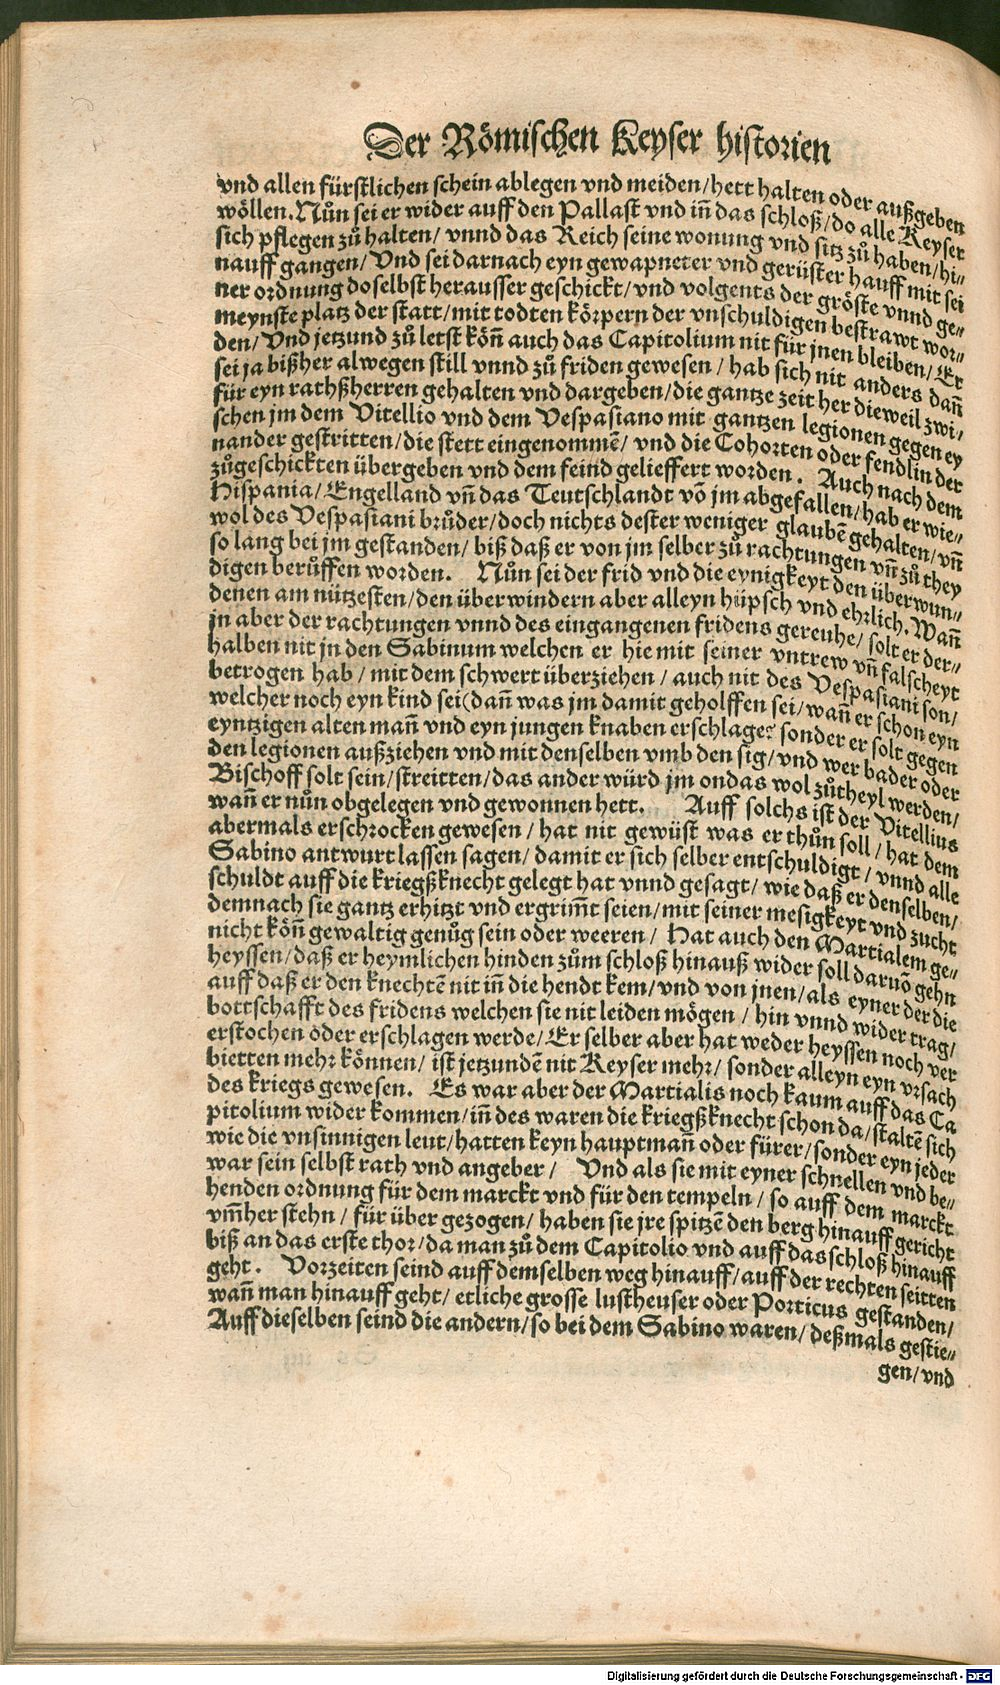 Der Römischen Keyser historien
vnd allen fürstlichen schein ablegen vnd meiden/hett halten oder außgeben
wöllen. Nůn sei er wider auff den Pallast vnd iñ das schloß/do alle Keyser
sich pflegen zů halten/ vnnd das Reich seine wonung vnd sitz zů haben/hi-
nauff gangen/Vnd sei darnach eyn gewapneter vnd gerüster hauff mit sei
ner ordnung doselbst herausser geschickt/vnd volgents der gröste vnnd ge-
meynste platz der statt/mit todten körpern der vnschuldigen bestrawt wor-
den/Vnd jetzund zů letst köñ auch das Capitolium nit für jnen bleiben/ Er
sei ja bißher alwegen still vnnd zů friden gewesen/ hab sich nit anders dañ
für eyn rathßherren gehalten vnd dargeben/die gantze zeit her dieweil zwi-
schen jm dem Vitellio vnd dem Vespasiano mit gantzen legionen gegen ey
nander gestritten/die stett eingenommē/ vnd die Cohorten oder fendlin der
zůgeschickten übergeben vnd dem feind gelieffert worden. Auch nach dem
Hispania/Engelland vñ das Teutschlandt vō jm abgefallen/hab er wie-
wol des Vespasiani brůder/doch nichts dester weniger glaubē gehalten/vñ
so lang bei jm gestanden/ biß daß er von jm selber zů rachtungen vñ zů they
digen berůffen worden. Nůn sei der frid vnd die eynigkeyt den überwun-
denen am nützesten/den überwindern aber alleyn hüpsch vnd ehrlich. Wañ
jn aber der rachtungen vnnd des eingangenen fridens gereuhe/ solt er der-
halben nit jn den Sabinum welchen er hie mit seiner vntrew vñ falscheyt
betrogen hab/ mit dem schwert überziehen/ auch nit des Vespasiani son/
welcher noch eyn kind sei(dañ was jm damit geholffen sei/wañ er schon eyn
eyntzigen alten mañ vnd eyn jungen knaben erschlage? sonder er solt gegen
den legionen außziehen vnd mit denselben vmb den sig/vnd wer bader oder
Bischoff solt sein/streitten/das ander würd jm ondas wol zůtheyl werden/
wañ er nůn obgelegen vnd gewonnen hett. Auff solchs ist der Vitellius
abermals erschrocken gewesen/ hat nit gewüst was er thůn soll/ hat dem
Sabino antwurt lassen sagen/ damit er sich selber entschuldigt/ vnnd alle
schuldt auff die kriegßknecht gelegt hat vnnd gesagt/ wie daß er denselben/
demnach sie gantz erhitzt vnd ergrim̃t seien/mit seiner mesigkeyt vnd zucht
nicht köñ gewaltig genůg sein oder weeren/ Hat auch den Martialem ge-
heyssen/daß er heymlichen hinden zům schloß hinauß wider soll daruō gehn
auff daß er den knechtē nit iñ die hendt kem/vnd von jnen/als eyner der die
bottschafft des fridens welchen sie nit leiden mögen/ hin vnnd wider trag/
erstochen oder erschlagen werde/ Er selber aber hat weder heyssen noch ver
bietten mehr können/ ist jetzundē nit Keyser mehr/ sonder alleyn eyn vrsach
des kriegs gewesen. Es war aber der Martialis noch kaum auff das Ca
pitolium wider kommen/iñ des waren die kriegßknecht schon da/staltē sich
wie die vnsinnigen leut/hatten keyn hauptmañ oder fürer/sonder eyn jeder
war sein selbst rath vnd angeber/ Vnd als sie mit eyner schnellen vnd be-
henden ordnung für dem marckt vnd für den tempeln/ so auff dem marckt
vm̃her stehn/ für über gezogen/ haben sie jre spitzē den berg hinauff gericht
biß an das erste thor/da man zů dem Capitolio vnd auff das schloß hinauff
geht. Vorzeiten seind auff demselben weg hinauff/auff der rechten seitten
wañ man hinauff geht/ etliche grosse lustheuser oder Porticus gestanden/
Auff dieselben seind die andern/so bei dem Sabino waren/ deßmals gestie-
gen/vnd
Digitalisierung gefördert durch die Deutsche Forschungsgemeinschaft - DFG